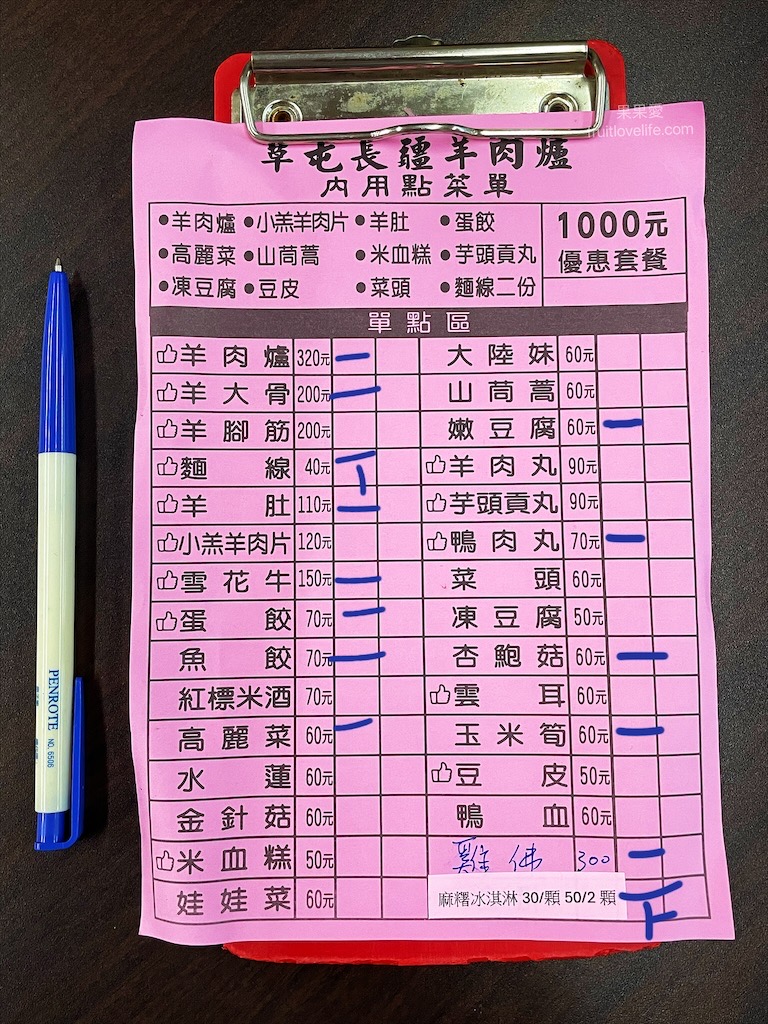 果果愛
fruitlovelife.com
草屯長疆羊肉爐
內用點菜單
●羊肉爐 ●小羔羊肉片 ●羊肚 ●蛋餃
●高麗菜 ●山茼蒿 ●米血糕 ●芋頭貢丸
●凍豆腐 ●豆皮 ●菜頭 ●麵線二份
1000元
優惠套餐
單點區
羊肉爐 320元 大陸妹 60元
羊大骨 200元 山茼蒿 60元
羊腳筋 200元 嫩豆腐 60元
麵線 40元 羊肉丸 90元
羊肚 110元 芋頭貢丸 90元
小羔羊肉片 120元 鴨肉丸 70元
雪花牛 150元 菜頭 60元
蛋餃 70元 凍豆腐 50元
魚餃 70元 杏鮑菇 60元
紅標米酒 70元 雲耳 60元
高麗菜 60元 玉米筍 60元
水蓮 60元 豆皮 50元
金針菇 60元 鴨血 60元
米血糕 50元 雞佛 300
娃娃菜 60元 麻糬冰淇淋 30/顆 50/2 顆
PENROTE NO. 6506